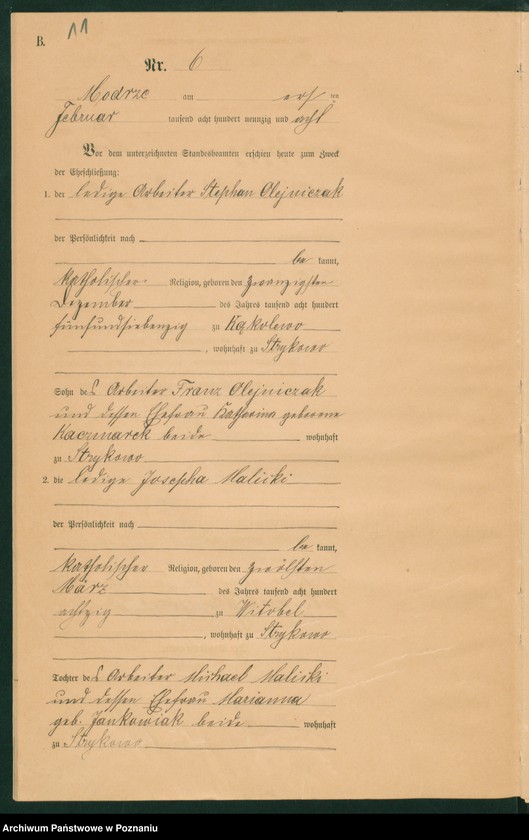 B.
11
Nr. 6
Modrze am ersten
Februar tausend acht hundert neunzig und acht
Vor dem unterzeichneten Standesbeamten erschien heute zum Zweck
der Eheschließung:
1. der ledige Arbeiter Stephan Olejniczak
der Persönlichkeit nach
be kannt,
katholischer Religion, geboren den zwanzigsten
Dezember des Jahres tausend acht hundert
fünfundsiebenzig zu Kąkolewo
, wohnhaft zu Strykowo
Sohn des Arbeiter Franz Olejniczak
und dessen Ehefrau Katharina geborene
Kaczmarek beide wohnhaft
zu Strykowo
2. die ledige Josepha Malicki
der Persönlichkeit nach
be kannt,
katholischer Religion, geboren den zwölften
März des Jahres tausend acht hundert
achtzig zu Witobel
, wohnhaft zu Strykowo
Tochter des Arbeiter Michael Malicki
und dessen Ehefrau Marianna
geb. Jankowiak beide wohnhaft
zu Strykowo
Archiwum Państwowe w Poznaniu